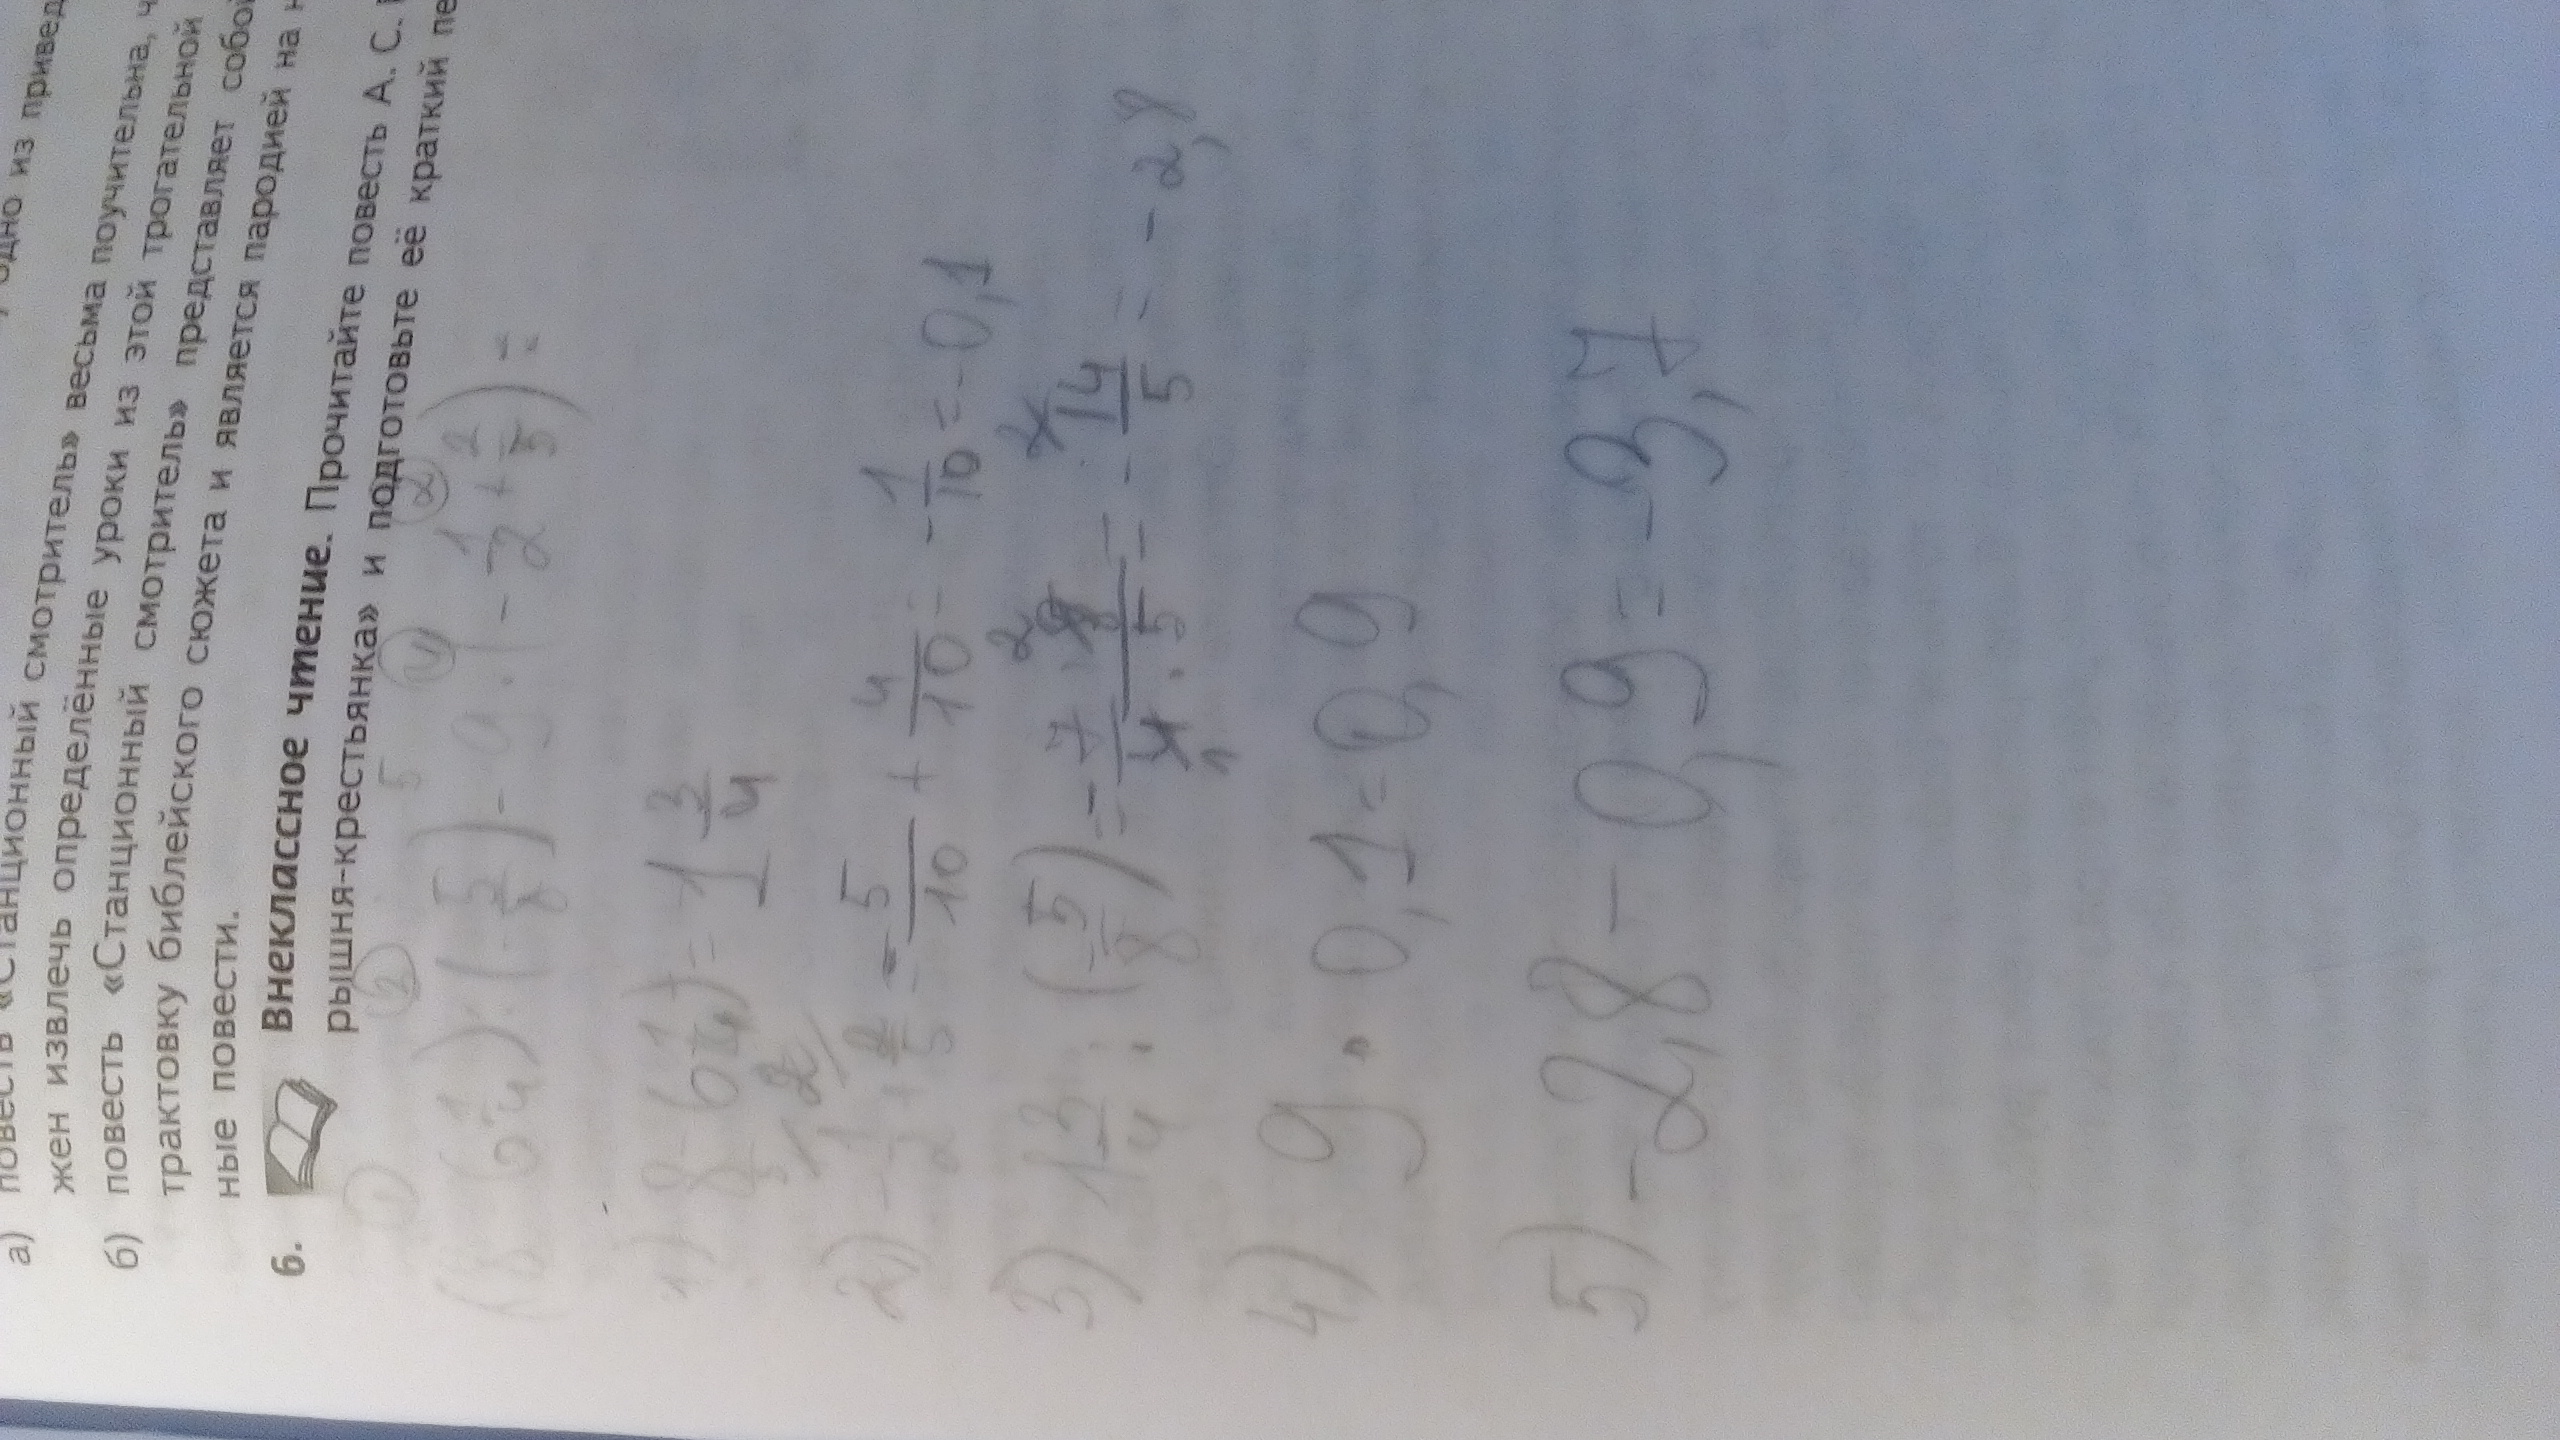 а) повесть «Станционный
одно из привед
жен извлечь определённые уроки из этой трогательной
смотритель» весьма поучительна, ч
б) повесть «Станционный смотритель» представляет собой
трактовку библейского сюжета и является пародией на н
ные повести.
6. Внеклассное чтение. Прочитайте повесть А. С.
рышня-крестьянка» и подготовьте её краткий пе
(8 - 6 1/4) : (-5/8) - 9 · (-1/2 + 2/5) =
1) 8 - 6 1/4 = 1 3/4
2) -1/2 + 2/5 = -5/10 + 4/10 = -1/10 = -0,1
3) 1 3/4 : (-5/8) = -7/4 · 8/5 = -14/5 = -2,8
4) 9 · 0,1 = 0,9
5) -2,8 - 0,9 = -3,7